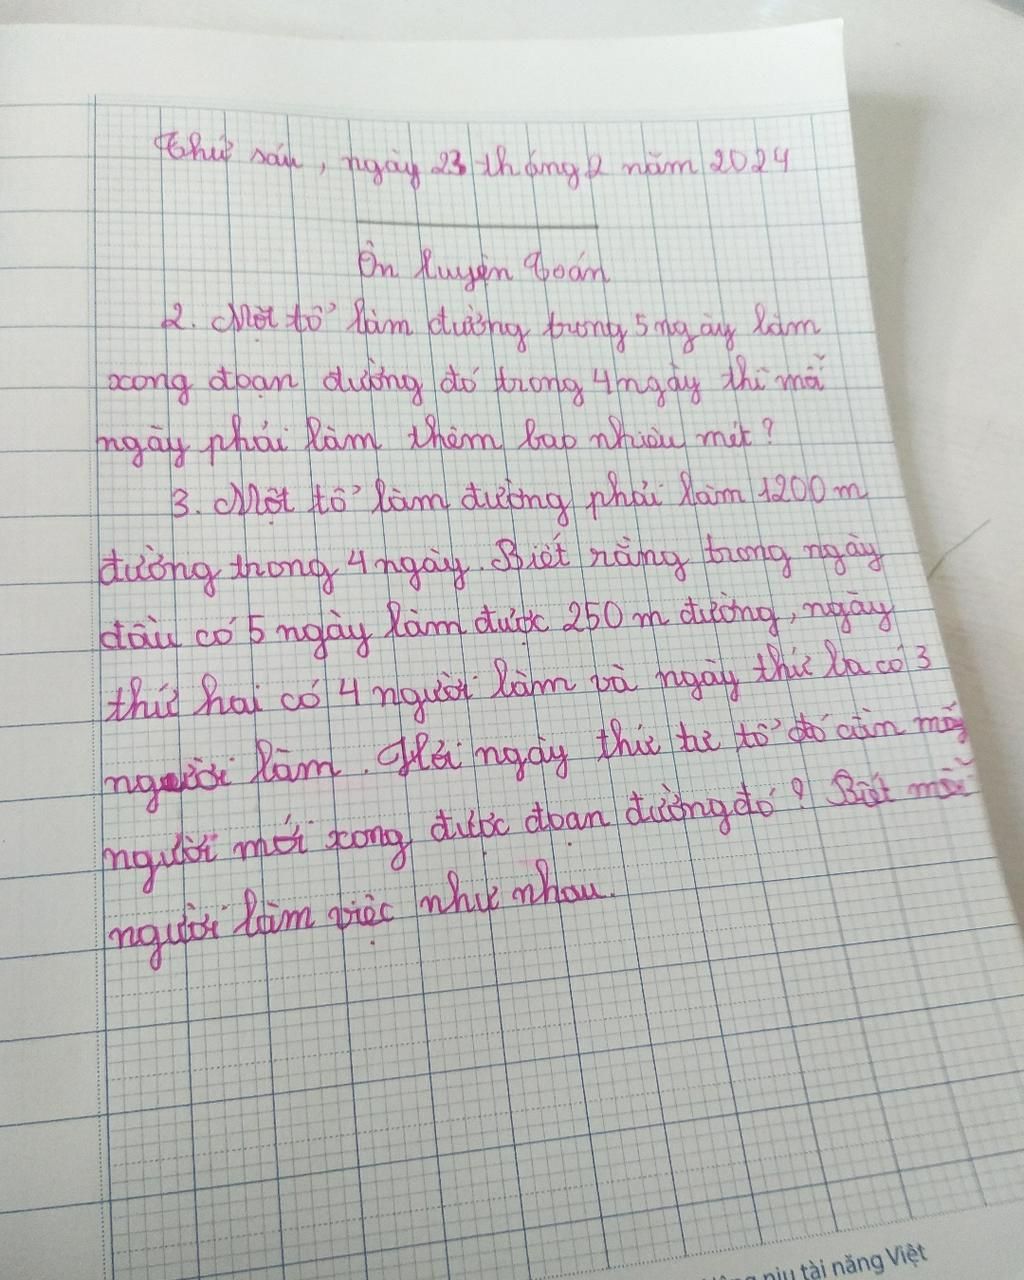 Thứ sáu, ngày 23 tháng 2 năm 2024
Ôn luyện Toán
2. Một tổ làm đường trong 5 ngày làm
xong đoạn đường đó trong 4 ngày thì mỗi
ngày phải làm thêm bao nhiêu mét?
3. Một tổ làm đường phải làm 1200 m
đường trong 4 ngày. Biết rằng trong ngày
đầu có 5 ngày làm được 250 m đường, ngày
thứ hai có 4 người làm và ngày thứ ba có 3
người làm. Hỏi ngày thứ tư tổ đó cần mấy
người mới xong được đoạn đường đó? Biết mỗi
người làm việc như nhau.
niu tài năng Việt